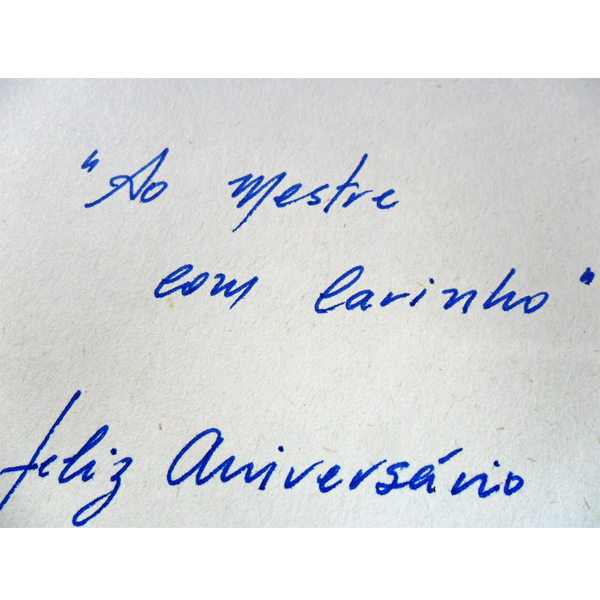 "Ao Mestre
com Carinho"
Feliz Aniversário